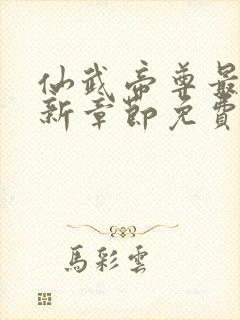 仙武帝尊最
新章節免費
馬彩雲